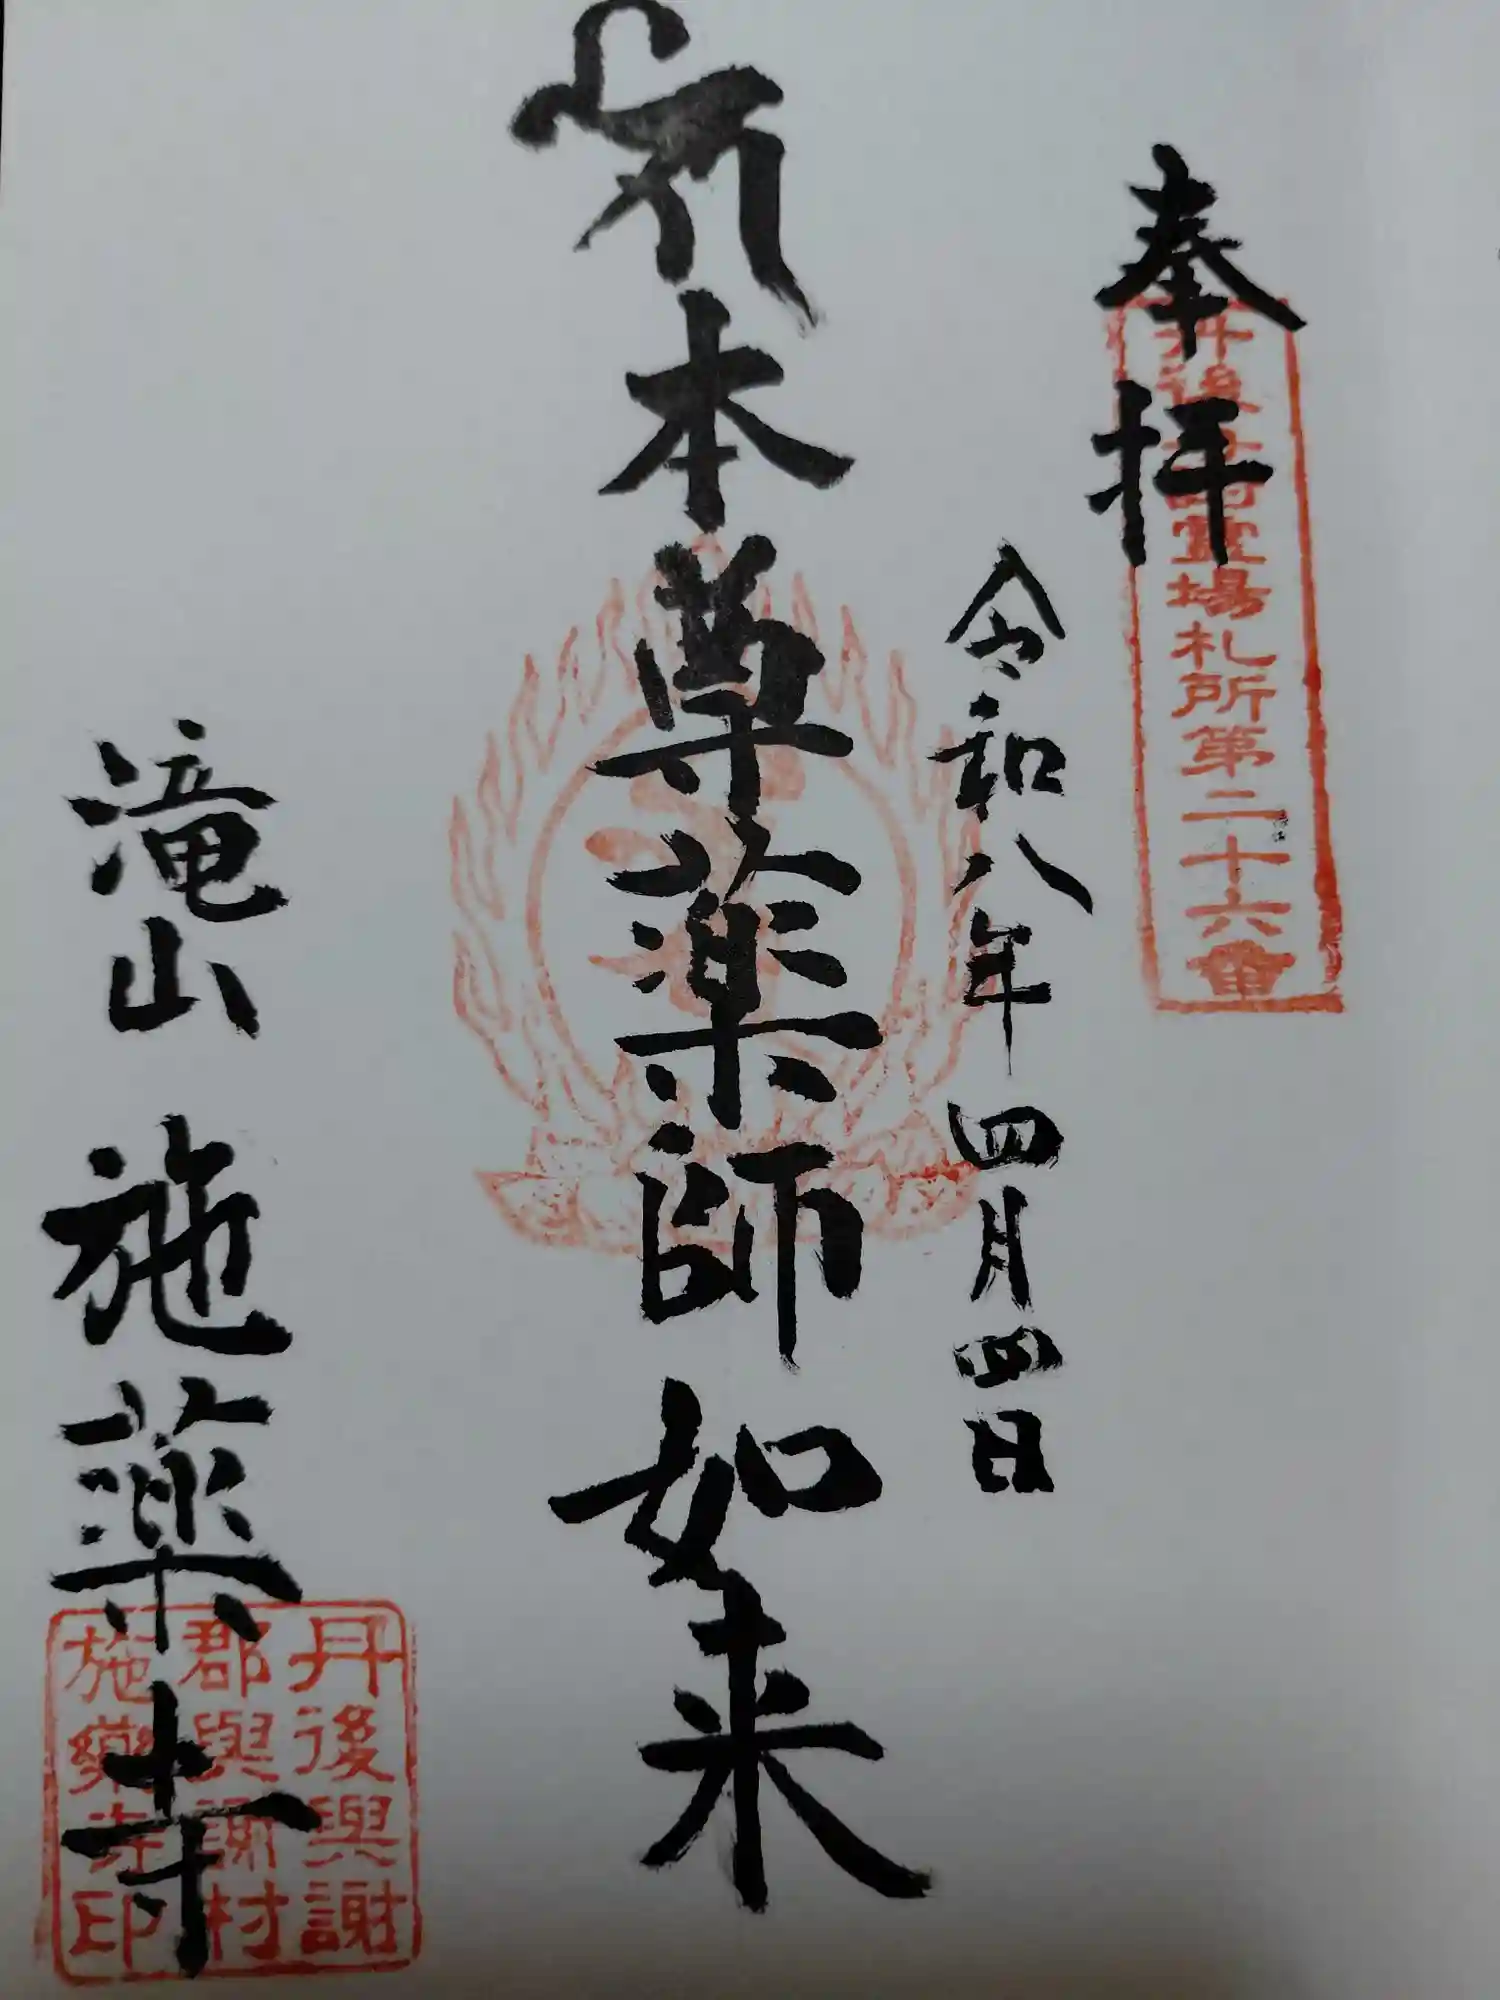 奉拝
丹後
霊場札所第二十六番
令和八年四月四日
本尊薬師如来
滝山施薬寺
丹後與謝
郡與謝村
施薬寺印